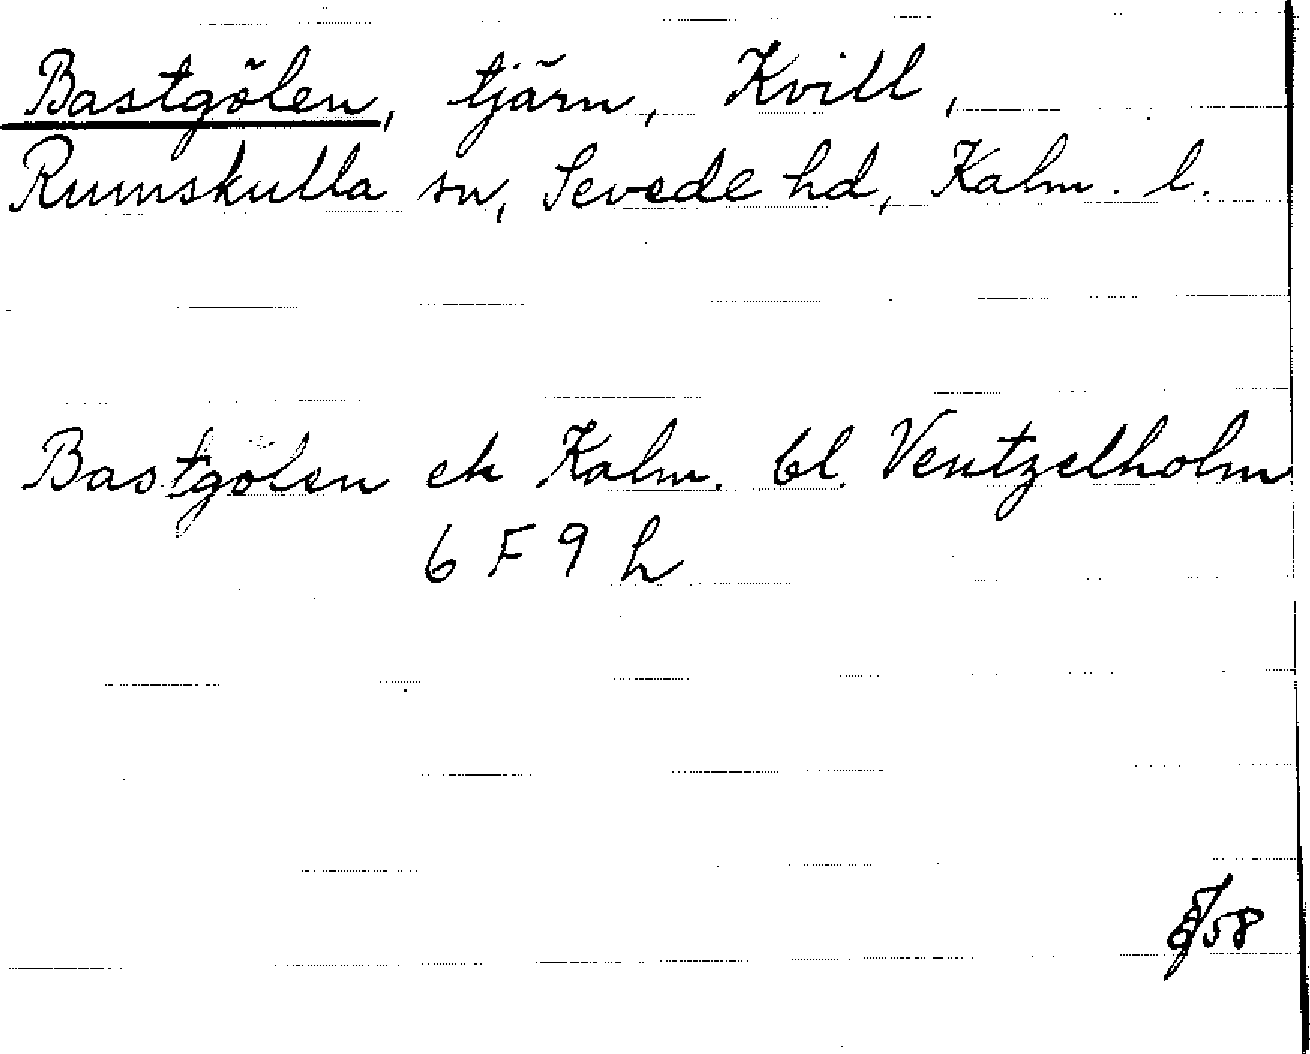 Bastgölen, tjärn, Kvill,
Rumskulla sn, Sevede hd, Kalm. l.
Bastgölen ek Kalm. bl. Ventzelholm
6 F 9 h
/58